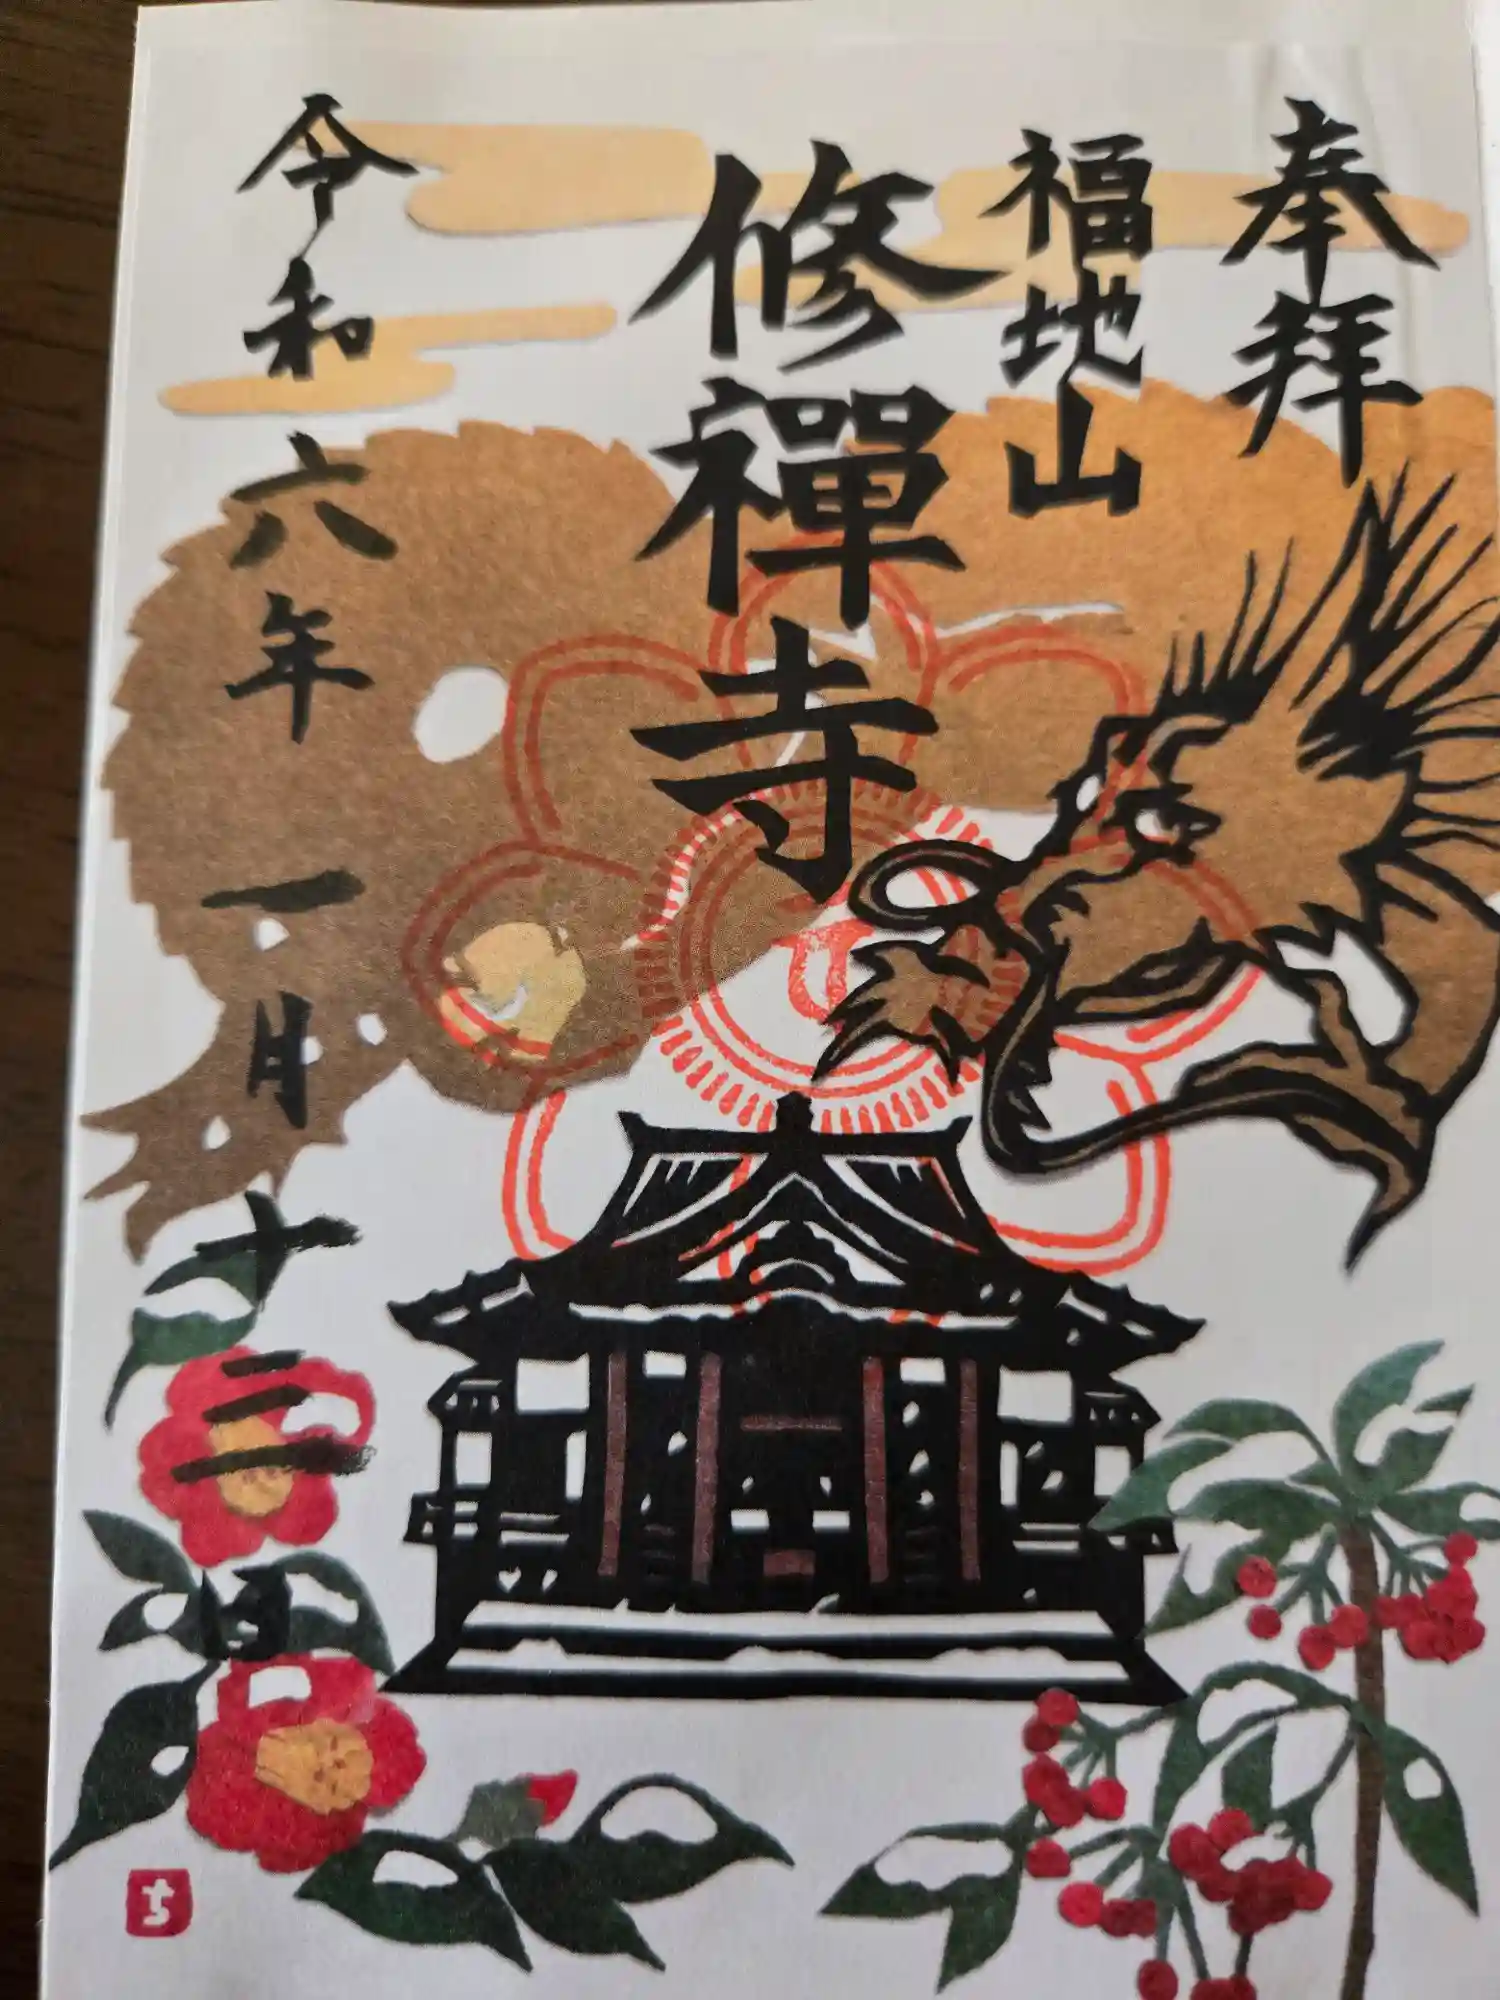 奉拜
福地山
修禪寺
令和六年一月十三日
ち